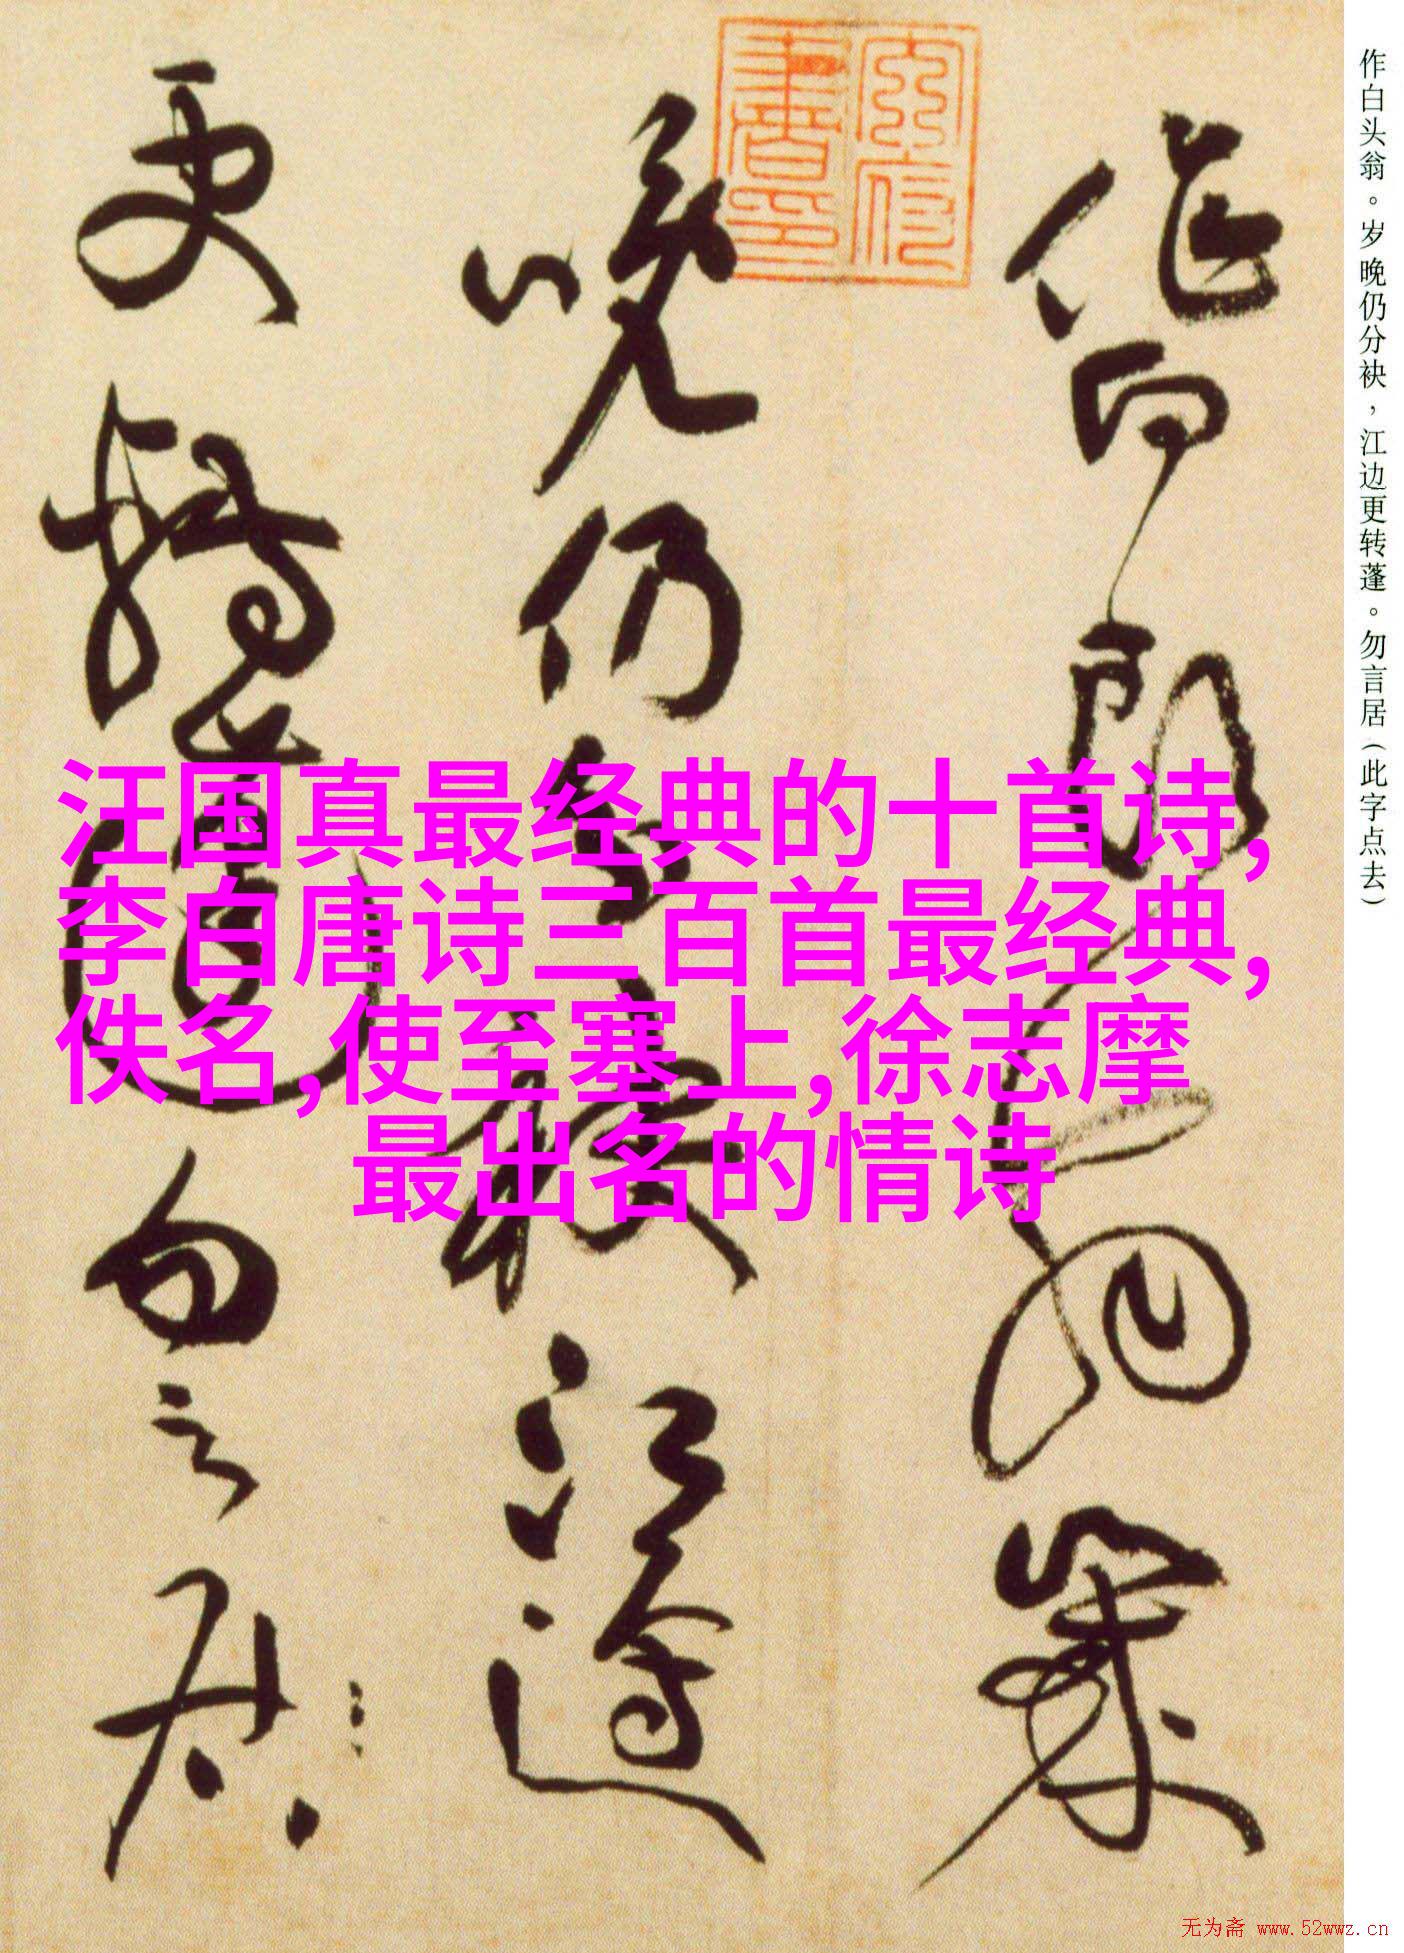 作白头翁。岁晚仍分袂，江边更转蓬。勿言居（此字点去）
作白头翁岁
晚仍分袂江边
更转蓬勿言居
汪国真最经典的十首诗,
李白唐诗三百首最经典,
佚名,使至塞上,徐志摩
最出名的情诗
无为斋 www.52wwz.cn